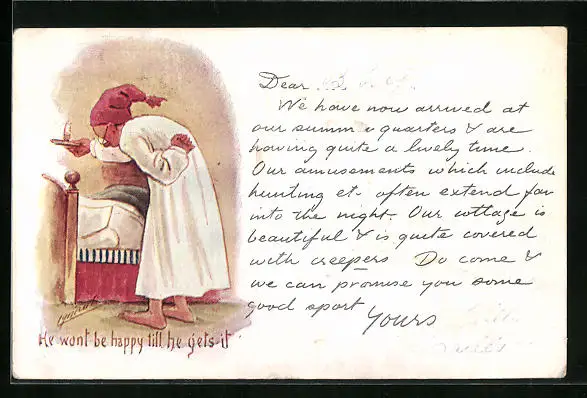 Dear
We have now arrived at
our summer quarters & are
having quite a lively time.
Our amusements which include
hunting et. often extend far
into the night. Our cottage is
beautiful & is quite covered
with creepers Do come &
we can promise you some
good sport
Yours
He wont be happy till he gets it